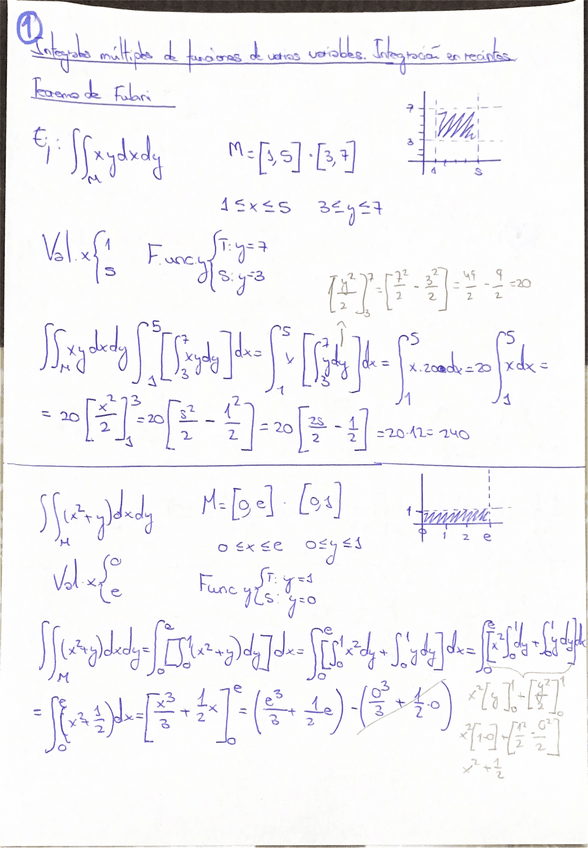 1
Integrales múltiples de funciones de varias variables. Integración en recintos
Teorema de Fubini
Ej: ∬_M xy dx dy M = [1,5] · [3,7]
7
3
1 5
1 ≤ x ≤ 5 3 ≤ y ≤ 7
Val. x { 1 5 F. unc y { T: y=7 S: y=3
[y²/2]₃⁷ = [7²/2 - 3²/2] = 49/2 - 9/2 = 20
∬_M xy dx dy ∫₁⁵ [∫₃⁷ xy dy] dx = ∫₁⁵ x [∫₃⁷ y dy] dx = ∫₁⁵ x·20 dx = 20 ∫₁⁵ x dx =
= 20 [x²/2]₁³ = 20 [5²/2 - 1²/2] = 20 [25/2 - 1/2] = 20·12 = 240
∬_M (x²+y) dx dy M = [0,e] · [0,1]
1
0 1 2 e
0 ≤ x ≤ e 0 ≤ y ≤ 1
Val. x { 0 e Func y { T: y=1 S: y=0
∬_M (x²+y) dx dy = ∫₀ᵉ [∫₀¹ (x²+y) dy] dx = ∫₀ᵉ [∫₀¹ x² dy + ∫₀¹ y dy] dx = ∫₀ᵉ [x² ∫₀¹ dy + ∫₀¹ y dy] dx
= ∫₀ᵉ (x² + 1/2) dx = [x³/3 + 1/2 x]₀ᵉ = (e³/3 + 1/2 e) - (0³/3 + 1/2·0)
x² [y]₀¹ + [y²/2]₀¹
x² [1-0] + [1²/2 - 0²/2]
x² + 1/2